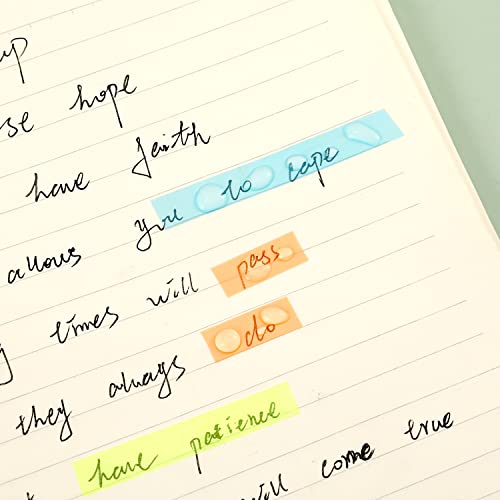 up
se hope
have faith
allows you to cope
times will pass
they always do
have patience
will come true